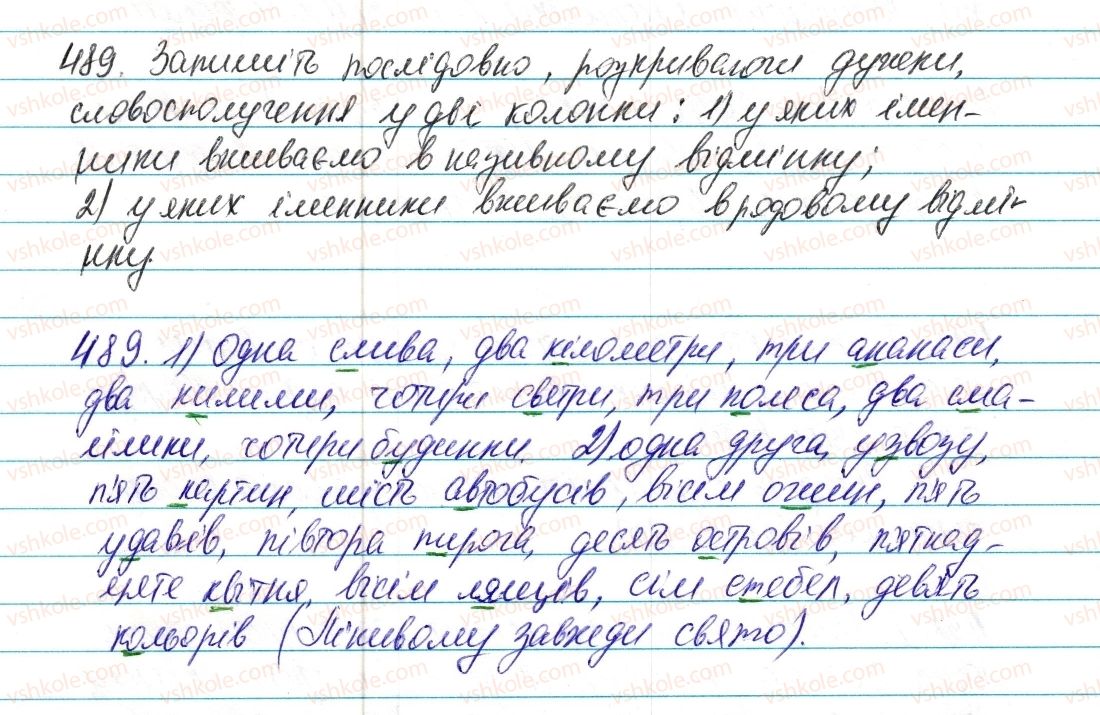 489. Запишіть послідовно, розкриваючи дужки,
словосполучення у дві колонки: 1) у яких імен-
ники вживаємо в називному відмінку;
2) у яких іменники вживаємо в родовому відмі-
нку.
489. 1) Одна слива, два кілометри, три ананаси,
два килими, чотири светри, три колеса, два сма-
йлики, чотири будинки. 2) одна друга, узвозу,
п'ять картин, шість автобусів, вісім ожин, п'ять
удавів, півтора пирога, десять островів, п'ятнад-
цяте квітня, вісім ланців, сім стебел, дев'ять
кольорів (Лінивому завжди свято).